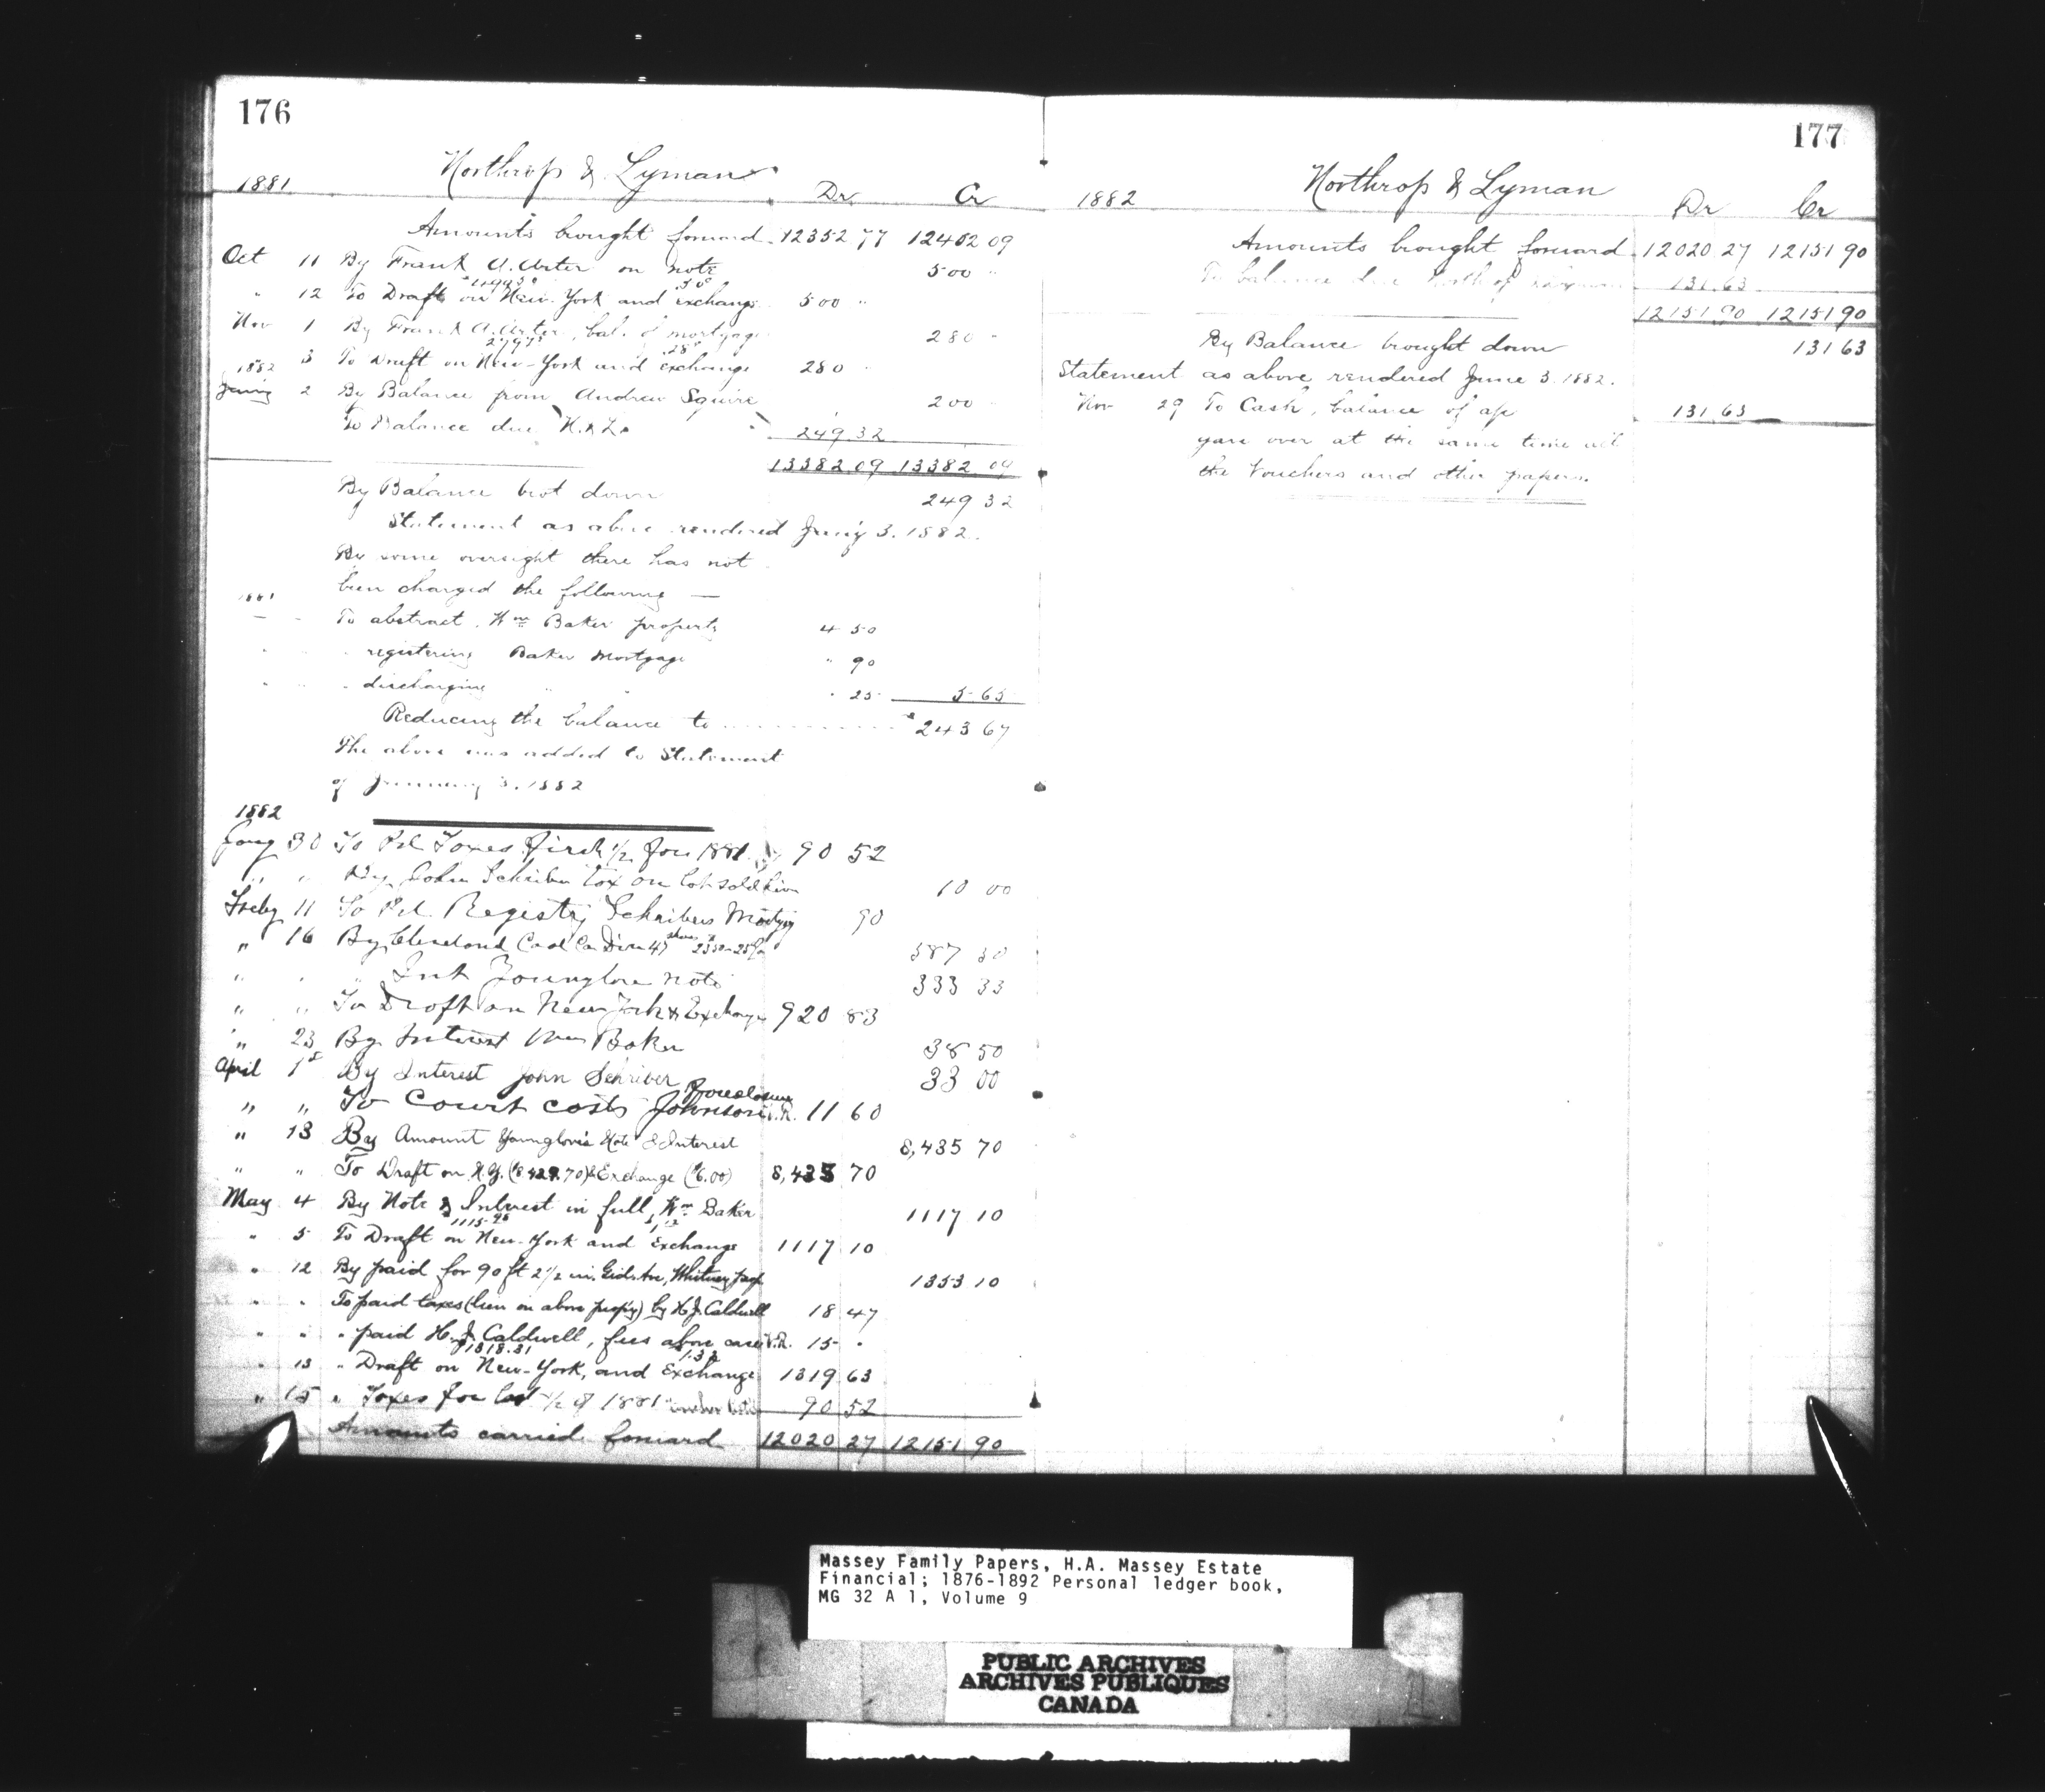 176
Northrop & Lyman
1881 Dr Cr
Amounts brought forward 12352 77 12402 09
Oct 11 By Frank A. Arter on note 500 "
" 12 To Draft on New-York and exchange 500 "
Nov 1 By Frank A. Arter, bal. of mortgage 280 -
3 To Draft on New-York and exchange 280 -
1882
Jany 2 By Balance from Andrew Squire 200 -
To Balance due N. & L. 249 32
13382 09 13382 09
By Balance brot down 249 32
Statement as above rendered Jany 3. 1882.
By some oversight there has not
been charged the following —
1881
To abstract. Wm Baker property 4 50
" registering Baker Mortgage " 90
" discharging " " " 25 5 65
Reducing the balance to $243 67
The above was added to Statement
of January 3. 1882
1882
Jany 30 To Pd Taxes first 1/2 for 1881 90 52
" " By John Schriber tax on lot sold him 10 00
Feby 11 To Pd. Registry Schribers Mortgage 90
" 16 By Cleveland Co Div 47 shares 587 50
" " " Int Younglove note 333 33
" " To Draft on New York & Exchange 920 83
" 23 By Interest Wm Baker 38 50
April 1st By Interest John Schriber 33 00
" " To Court costs Johnson foreclosure V.R. 11 60
" 13 By Amount Younglove's Note & Interest 8,435 70
" " To Draft on N.Y. ($8429.70) & Exchange ($6.00) 8,435 70
May 4 By Note & Interest in full, Wm Baker 1117 10
1115.98 1.12
" 5 To Draft on New-York and Exchange 1117 10
" 12 By paid for 90 ft 2 1/2 in. Euclid Ave, Whitney prop 1353 10
" " To paid taxes (lien on above prop'y) by H. J. Caldwell 18 47
" " " paid H. J. Caldwell, fees above case V.R. 15 -
1318.31 1.32
" 13 " Draft on New-York, and Exchange 1319 63
" 15 " Taxes for last 1/2 of 1881 90 52
Amounts carried forward 12020 27 12151 90
177
Northrop & Lyman
1882 Dr Cr
Amounts brought forward 12020 27 12151 90
To balance due Northrop & Lyman 131 63
12151 90 12151 90
By Balance brought down 131 63
Statement as above rendered June 3. 1882.
Nov 29 To Cash, balance of a/c 131 63
gave over at the same time all
the Vouchers and other papers.
Massey Family Papers, H.A. Massey Estate
Financial; 1876-1892 Personal ledger book,
MG 32 A 1, Volume 9
PUBLIC ARCHIVES
ARCHIVES PUBLIQUES
CANADA